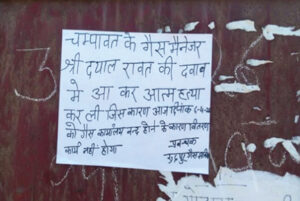 चम्पावत के गैस मैनेजर
श्री दयाल रावत की दवाब
मे आ कर आत्महत्या
कर ली जिस कारण आज दिनांक
को गैस कार्यालय बन्द होने के कारण वितरण
कार्य नहीं होगा
प्रबन्धक
3